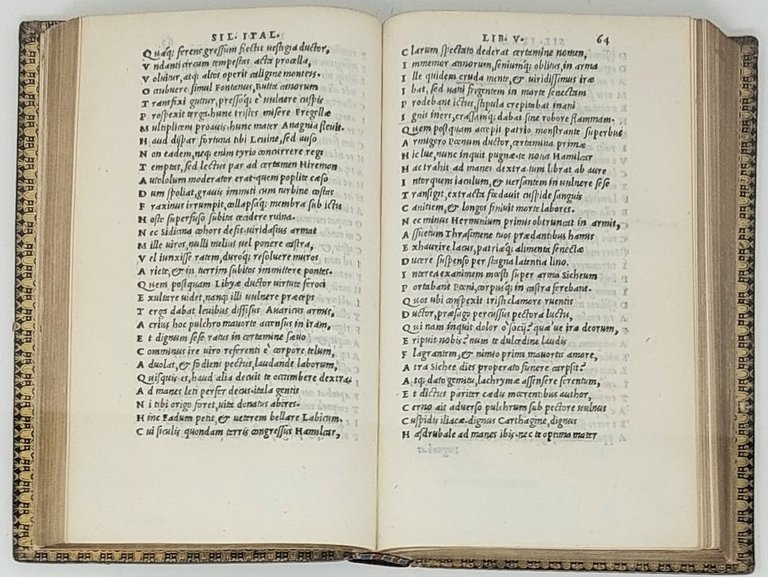 SIL. ITAL.
Quàq; ferens gressum flectit uestigia ductor,
Vndanti circum tempestas acta procella,
Voluitur, atq; altos operit caligine monteis.
Occubuere simul Fontanus, Butta canorum
Transfixi gutur, pressoq; è uulnere cuspis
Prospexit terga. hunc tristes misere Fregellæ
Multiplicem proauis. hunc mater Anagnia fleuit.
Haud dispar fortuna tibi Leuine, sed auso
Non eadem, neq; enim tyrio concurrere regi
Temptas, sed lectus par ad certamen Hiremon
Autololum moderator erat. quem poplite cæso
Dum spoliat, grauis immiti cum turbine costas
Fraxinus irrumpit, collapsaq; membra sub ictu
Hoste superfuso subita cecidere ruina.
Nec Sidicina cohors defit. uiridasius armat
Mille uiros, nulli melius uel ponere castra,
Vel iunxisse ratem, duroq; resoluere muros
Ariete, & in turrim subitos immittere pontes.
Quem postquam Libyæ ductor uirtute feroci
Exultare uidet, nanq; illi uulnere præceps
Terga dabat leuibus diffisus Auaricus armis,
Acrius hoc pulchro mauorte accensus in iram,
Et dignum sese ratus in certamine sæuo
Comminus ire uiro referenti è corpore telum,
Aduolat, & fodiens pectus, laudande laborum,
Quisquis es, haud alia decuit te occumbere dextra.
Ad manes leti perfer decus. itala gentis
Ni tibi origo foret, uita donatus abires.
Hinc Fadum petit, & ueterem bellare Labicum.
Cui siculis quondam terris congressus Hamilcar,
LIB. V. 64
Clarum spectato dederat certamine nomen,
Immemor annorum, seniumq; oblitus, in arma
Ille quidem cruda mente, & uiridissimus iræ
Ibat, sed uani frigentem in marte senectam
Prodebant ictus, stipula crepitabat inani
Ignis iners, crassamq; dabat sine robore flammam.
Quem postquam accepit patrio monstrante superbus
Armigero Pœnum ductor, certamina primæ
Hic lue, nunc inquit pugnæ. te notus Hamilcar
Hac trahit ad manes dextra. tum librat ab aure
Intorquens iaculum, & uersantem in uulnere sese
Transigit, extracta fœdauit cuspide sanguis
Canitiem, & longos finiuit morte labores.
Nec minus Herminium primus obtruncat in armis,
Assuetum Thrasimene tuos prædantibus hamis
Exhaurire lacus, patriæq; alimenta senectæ
Ducere suspenso per stagna latentia lino.
Interea exanimem mœsti super arma Sicheum
Portabant Pœni, corpusq; in castra ferebant.
Quos ubi conspexit tristi clamore ruentis
Ductor, præsago percussus pectora luctu,
Qui nam inquit dolor ò socij? quæ ue ira deorum,
Eripuit nobis? num te dulcedine laudis
Flagrantem, & nimio primi mauortis amore,
Atra Sichee dies properato funere carpsit?
Atq; dato gemitu, lachrymæ assensere ferentum,
Et dictus pariter cædis mœrentibus author,
Cerno ait aduerso pulchrum sub pectore uulnus
Cuspidis iliacæ. dignus Carthagine, dignus
Hasdrubale ad manes ibis. nec te optima mater